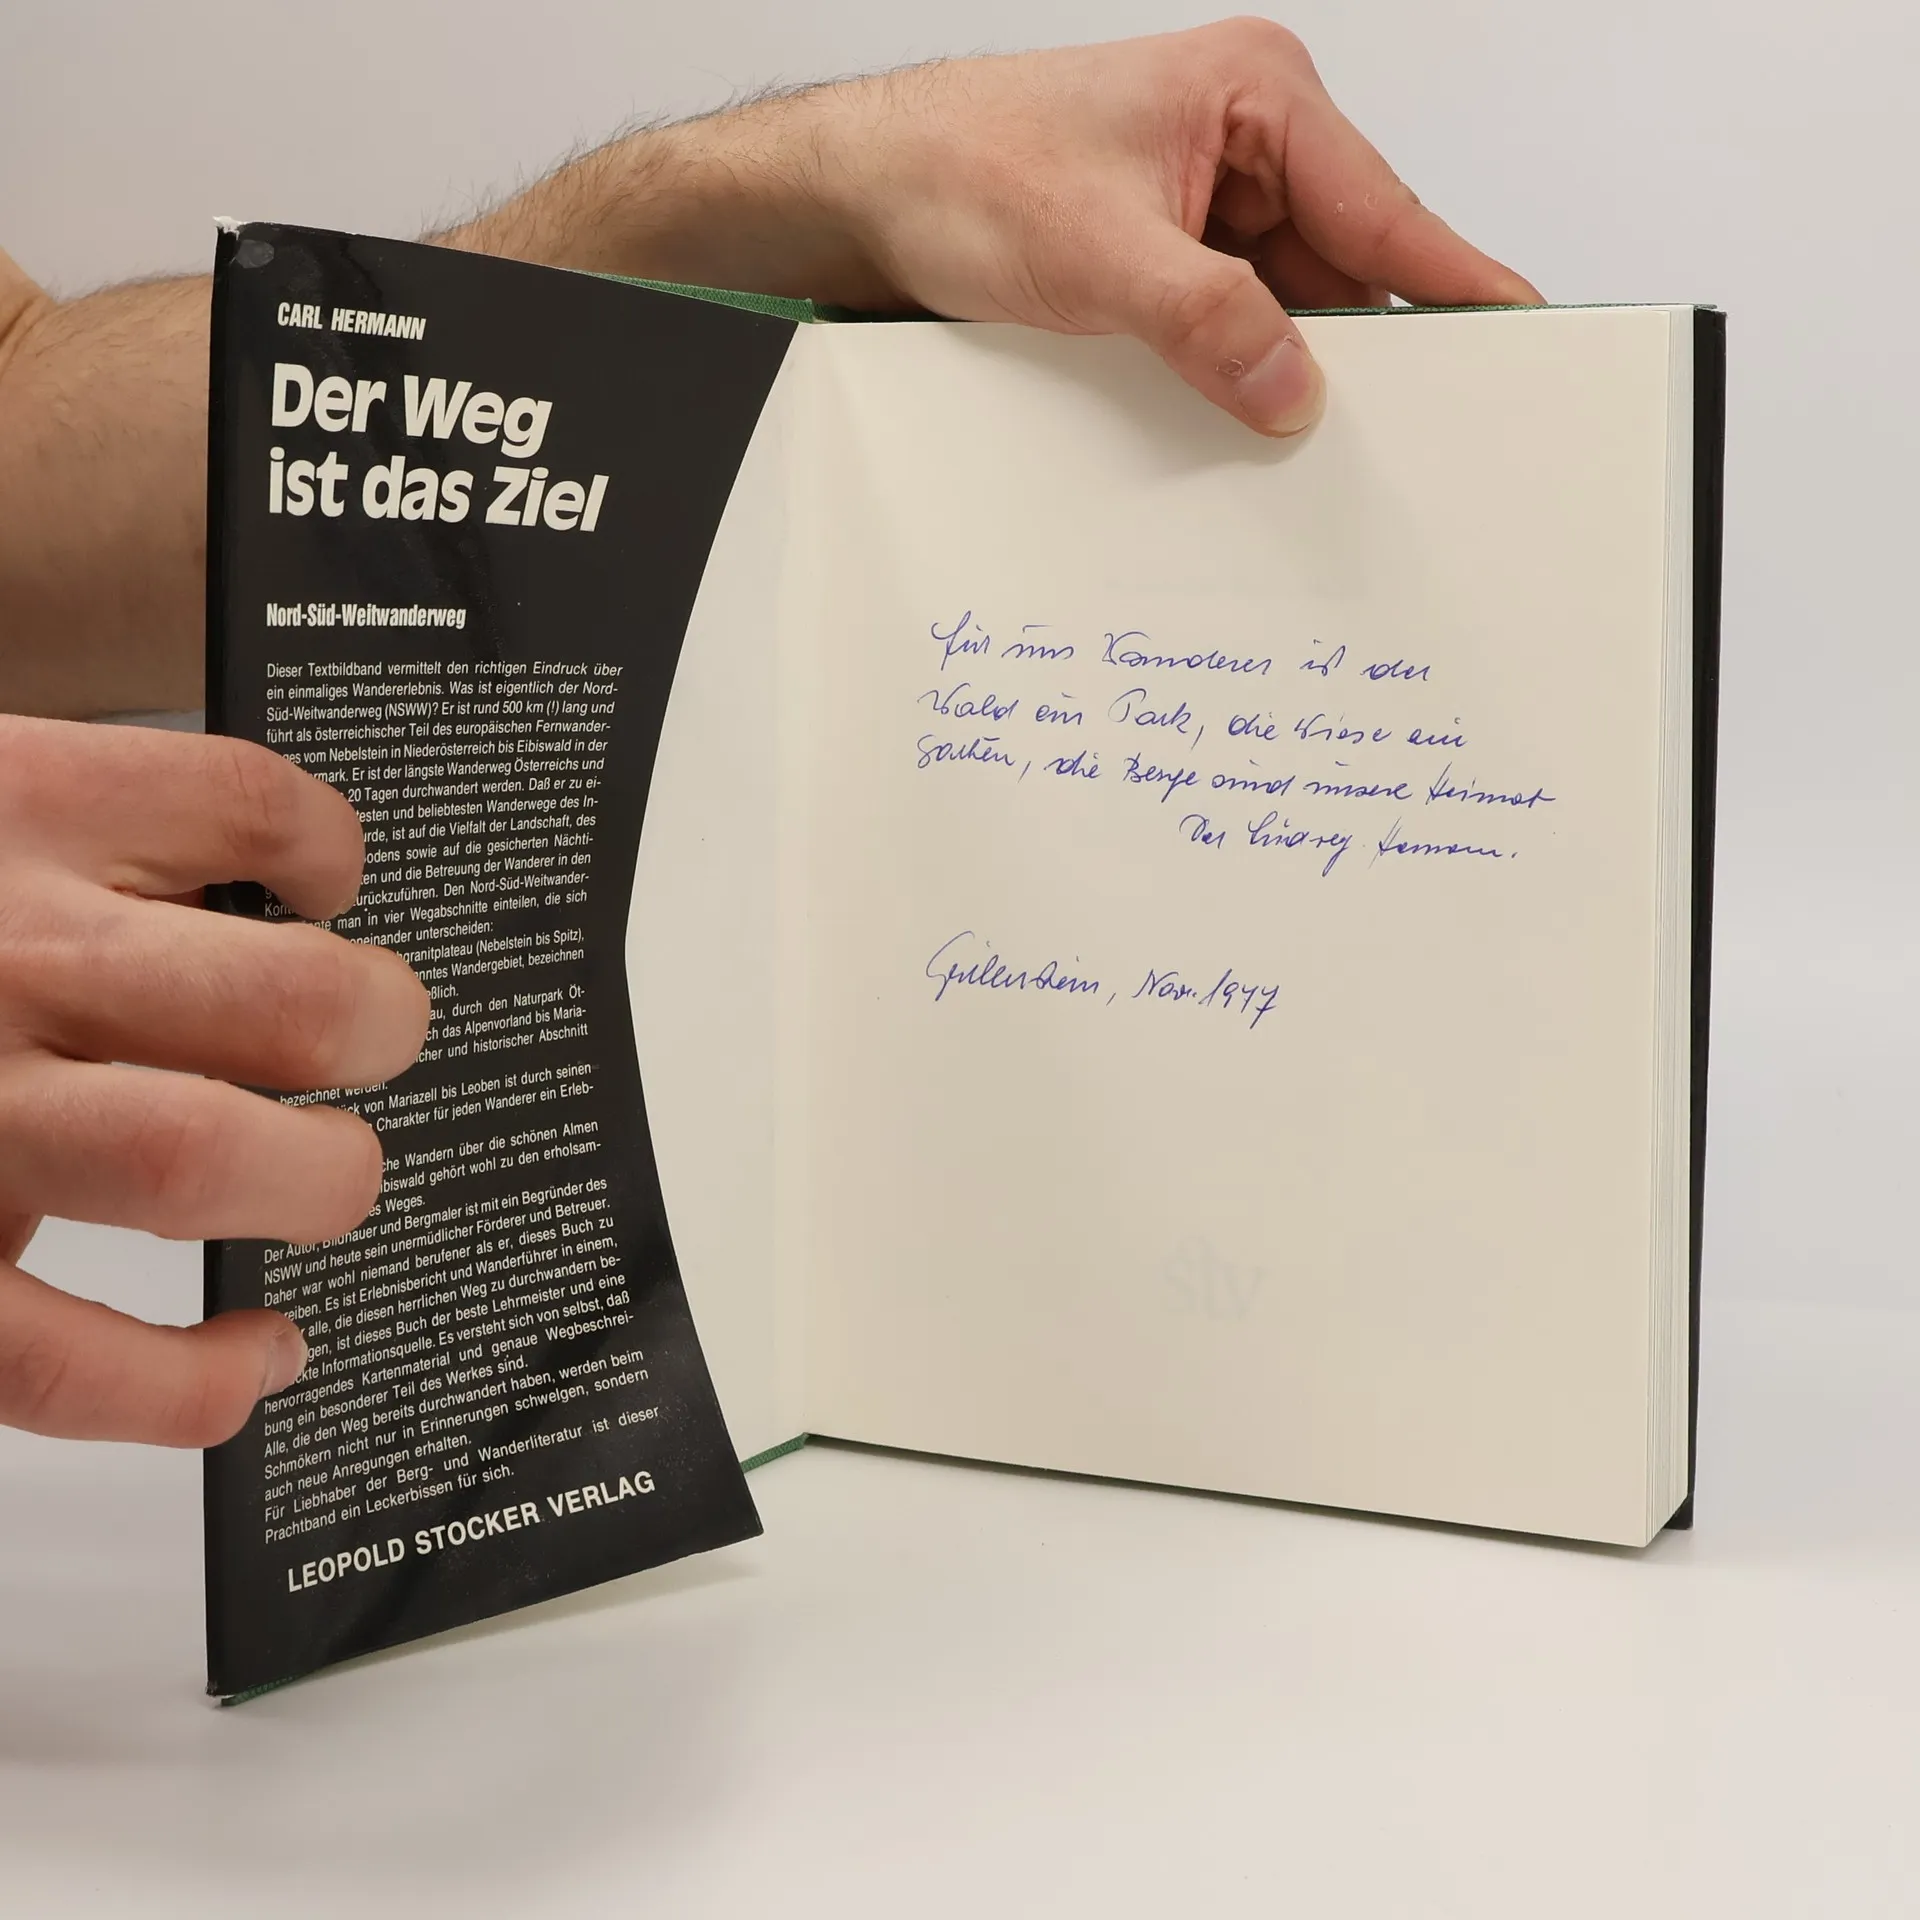 CARL HERMANN
Der Weg
ist das Ziel
Nord-Süd-Weitwanderweg
Dieser Textbildband vermittelt den richtigen Eindruck über
ein einmaliges Wandererlebnis. Was ist eigentlich der Nord-
Süd-Weitwanderweg (NSWW)? Er ist rund 500 km (!) lang und
führt als österreichischer Teil des europäischen Fernwander-
ges vom Nebelstein in Niederösterreich bis Eibiswald in der
rmark. Er ist der längste Wanderweg Österreichs und
20 Tagen durchwandert werden. Daß er zu ei-
testen und beliebtesten Wanderwege des In-
urde, ist auf die Vielfalt der Landschaft, des
odens sowie auf die gesicherten Nächti-
ten und die Betreuung der Wanderer in den
urückzuführen. Den Nord-Süd-Weitwander-
man in vier Wegabschnitte einteilen, die sich
oneinander unterscheiden:
hgranitplateau (Nebelstein bis Spitz),
nntes Wandergebiet, bezeichnen
eßlich.
au, durch den Naturpark Öt-
ch das Alpenvorland bis Maria-
cher und historischer Abschnitt
bezeichnet werden.
ück von Mariazell bis Leoben ist durch seinen
Charakter für jeden Wanderer ein Erleb-
che Wandern über die schönen Almen
ibiswald gehört wohl zu den erholsam-
es Weges.
Der Autor, Bildhauer und Bergmaler ist mit ein Begründer des
NSWW und heute sein unermüdlicher Förderer und Betreuer.
Daher war wohl niemand berufener als er, dieses Buch zu
reiben. Es ist Erlebnisbericht und Wanderführer in einem,
r alle, die diesen herrlichen Weg zu durchwandern be-
gen, ist dieses Buch der beste Lehrmeister und eine
ckte Informationsquelle. Es versteht sich von selbst, daß
hervorragendes Kartenmaterial und genaue Wegbeschrei-
bung ein besonderer Teil des Werkes sind.
Alle, die den Weg bereits durchwandert haben, werden beim
Schmökern nicht nur in Erinnerungen schwelgen, sondern
auch neue Anregungen erhalten.
Für Liebhaber der Berg- und Wanderliteratur ist dieser
Prachtband ein Leckerbissen für sich.
LEOPOLD STOCKER VERLAG
für uns Wanderer ist der
Wald ein Park, die Wiese ein
Garten, die Berge sind unsere Heimat
Der Hermann.
Nov. 1977